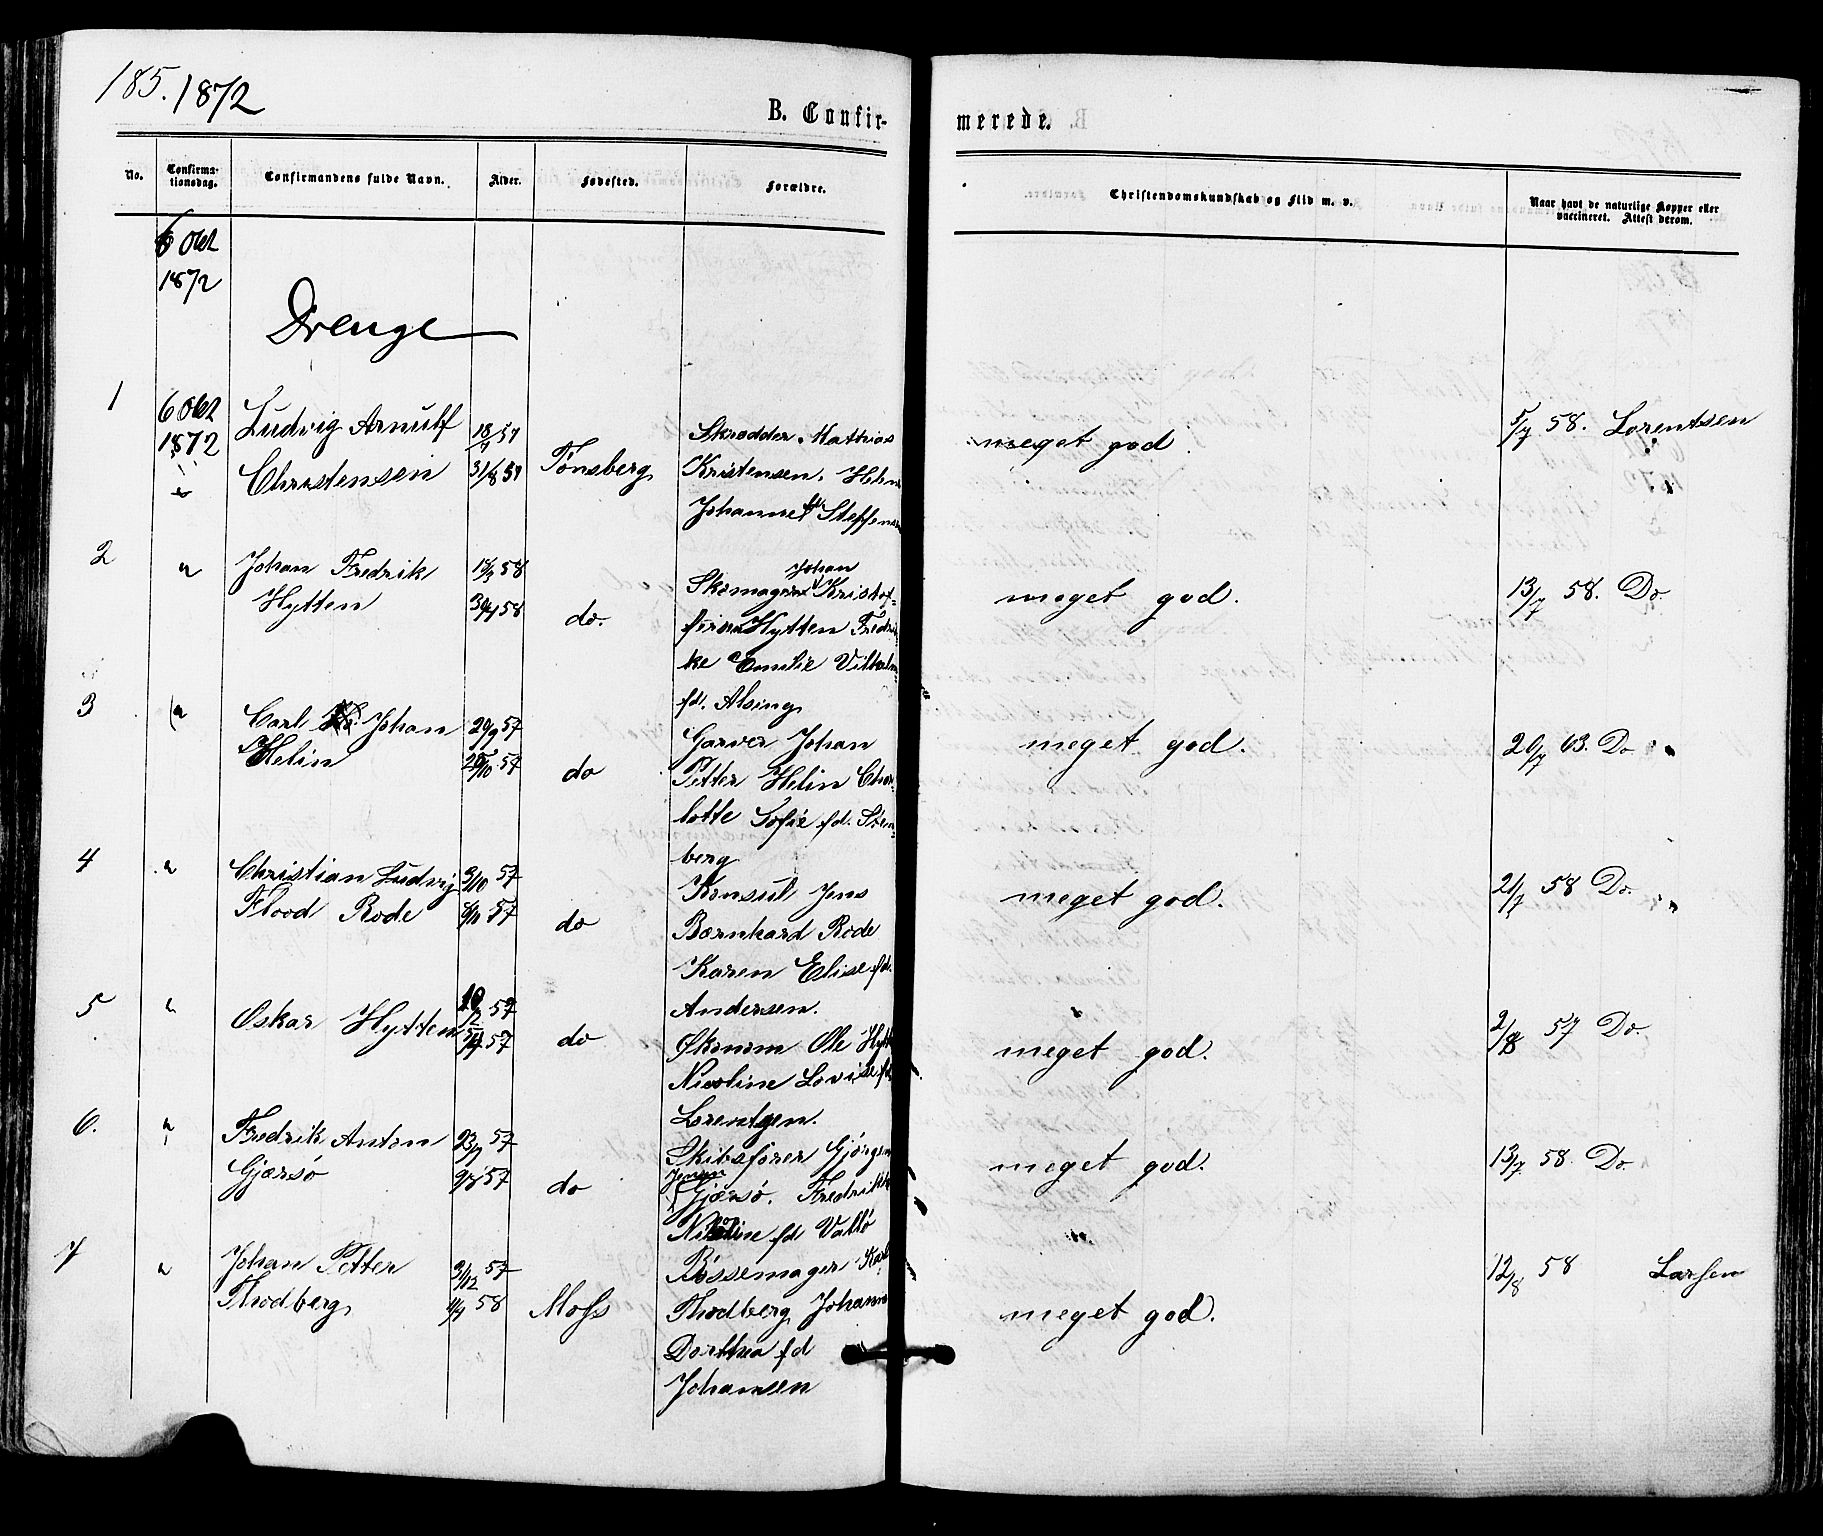 185. 1872
B. Confir-
merede.
No.
Confirma-
tionsdag.
Confirmandens fulde Navn.
Alder.
Fødested.
Forældre.
Christendomskundskab og Flid m. v.
Naar havt de naturlige Kopper eller
vaccineret. Attest derom.
6 Okt
1872
Drenge
1
6 Okt
1872
Ludvig Arnulf
Christensen
31/8 57
Tønsberg
Skrædder Mathias
Kristensen,
Johanne fd. Steffensen
meget god
5/7 58. Lorentsen
2
"
Johan Fredrik
Hytten
58
58
do.
Johan
Skomager Kristof-
Hytten Fredri
ke Emilie Vilhelm
fd. Alsing
meget god.
13/7 58. Do.
3
"
Carl Johan
Helin
29/9 57
25/10 57
do
Garver Johan
Petter Helin Char
lotte Sofie fd. Sten
berg
meget god.
20/7 63. Do
4
"
Christian Ludvig
Flood Rode
3/10 57
57
do
Konsul Jens
Bernhard Rode
Karen Elise fd.
Andersen.
meget god.
21/7 58 Do.
5
"
Oskar Hytten
57
57
do
Økonom Ole Hytt
Nicoline Lovise fd
Lorentzen.
meget god.
2/8 57 Do.
6.
"
Fredrik Anton
Gjærsø
57
57
do
Skibsfører Gjørgen
Jensen
Gjærsø. Fredrikk
fd Vallø
meget god.
13/7 58. Do
7
"
Johan Petter
Thodberg
31/12 57
58
Moss
Bøssemager Karl
Thodberg Johanne
Dorthea fd
Johansen
meget god.
12/8 58 Larsen